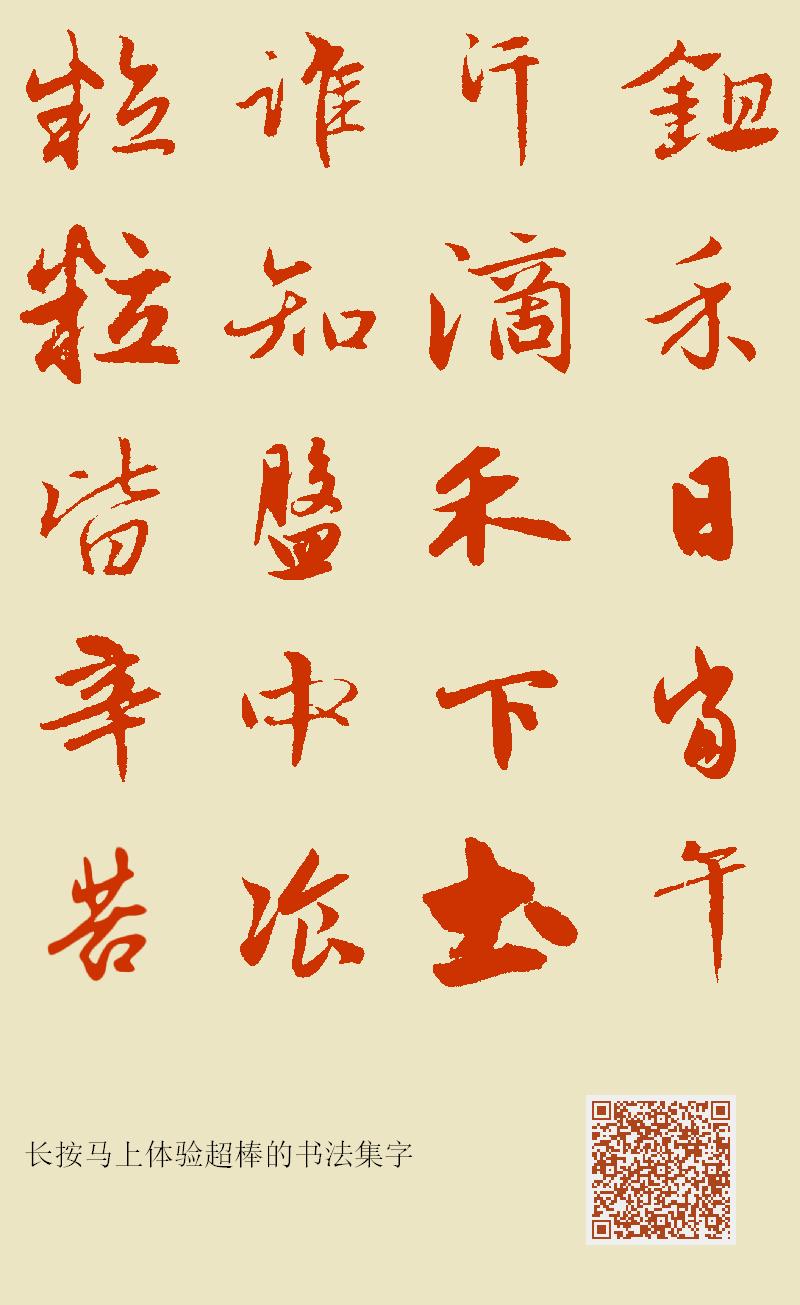 鉏禾日當午
汗滴禾下土
誰知盤中飡
粒粒皆辛苦
长按马上体验超棒的书法集字